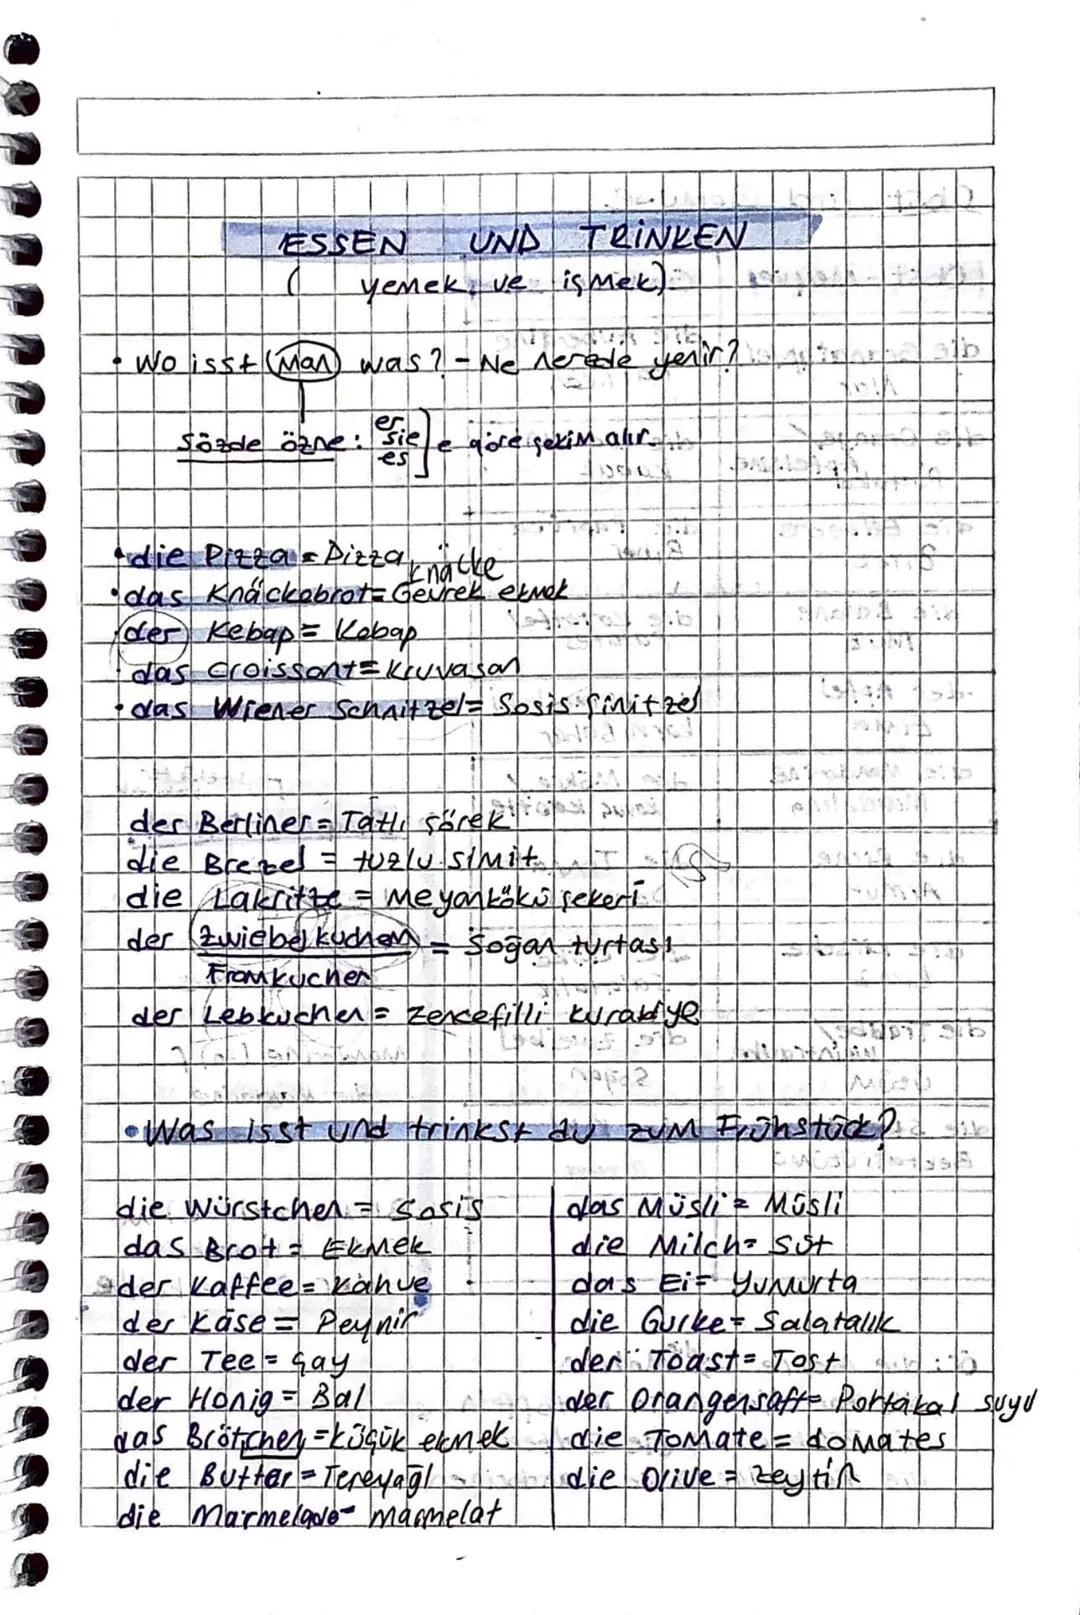 ESSEN UND TRINKEN
( yemek ve içmek)
• Wo isst man was? - Ne nerede yenir?
Sözde özne: er sie es ] e göre çekim alır.
• die Pizza = Pizza
knäcke
• das Knäckebrot = Gevrek ekmek
der Kebap = Kebap
das Croissant = Kruvasan
• das Wiener Schnitzel = Sosis şinitzel
der Berliner = Tatlı çörek
die Brezel = tuzlu simit
die Lakritze = Meyankökü şekeri
der Zwiebelkuchen = Soğan turtası
der Lebkuchen = Zencefilli kurabiye
• Was isst und trinkst du zum Frühstück?
die Würstchen = Sosis
das Brot = Ekmek
der Kaffee = Kahve
der Käse = Peynir
der Tee = çay
der Honig = Bal
das Brötchen = küçük ekmek
die Butter = Tereyağı
die Marmelade = marmelat
das Müsli = Müsli
die Milch = Süt
das Ei = Yumurta
die Gurke = Salatalık
der Toast = Tost
der Orangensaft = Portakal suyu
die Tomate = domates
die Olive = zeytin